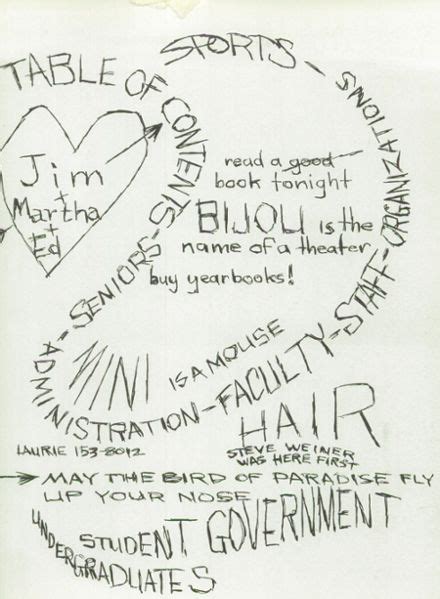 TABLE OF CONTENTS-SENIORS-ADMINISTRATION-FACULTY-STAFF-ORGANIZATIONS
SPORTS-
Jim
+
Martha
+
Ed
read a good
book tonight
BIJOU is the
name of a theater
buy yearbooks!
MINI IS A MOUSE
HAIR
LAURIE 153-8012
STEVE WEINER
WAS HERE FIRST
MAY THE BIRD OF PARADISE FLY
UP YOUR NOSE
STUDENT GOVERNMENT
UNDERGRADUATES